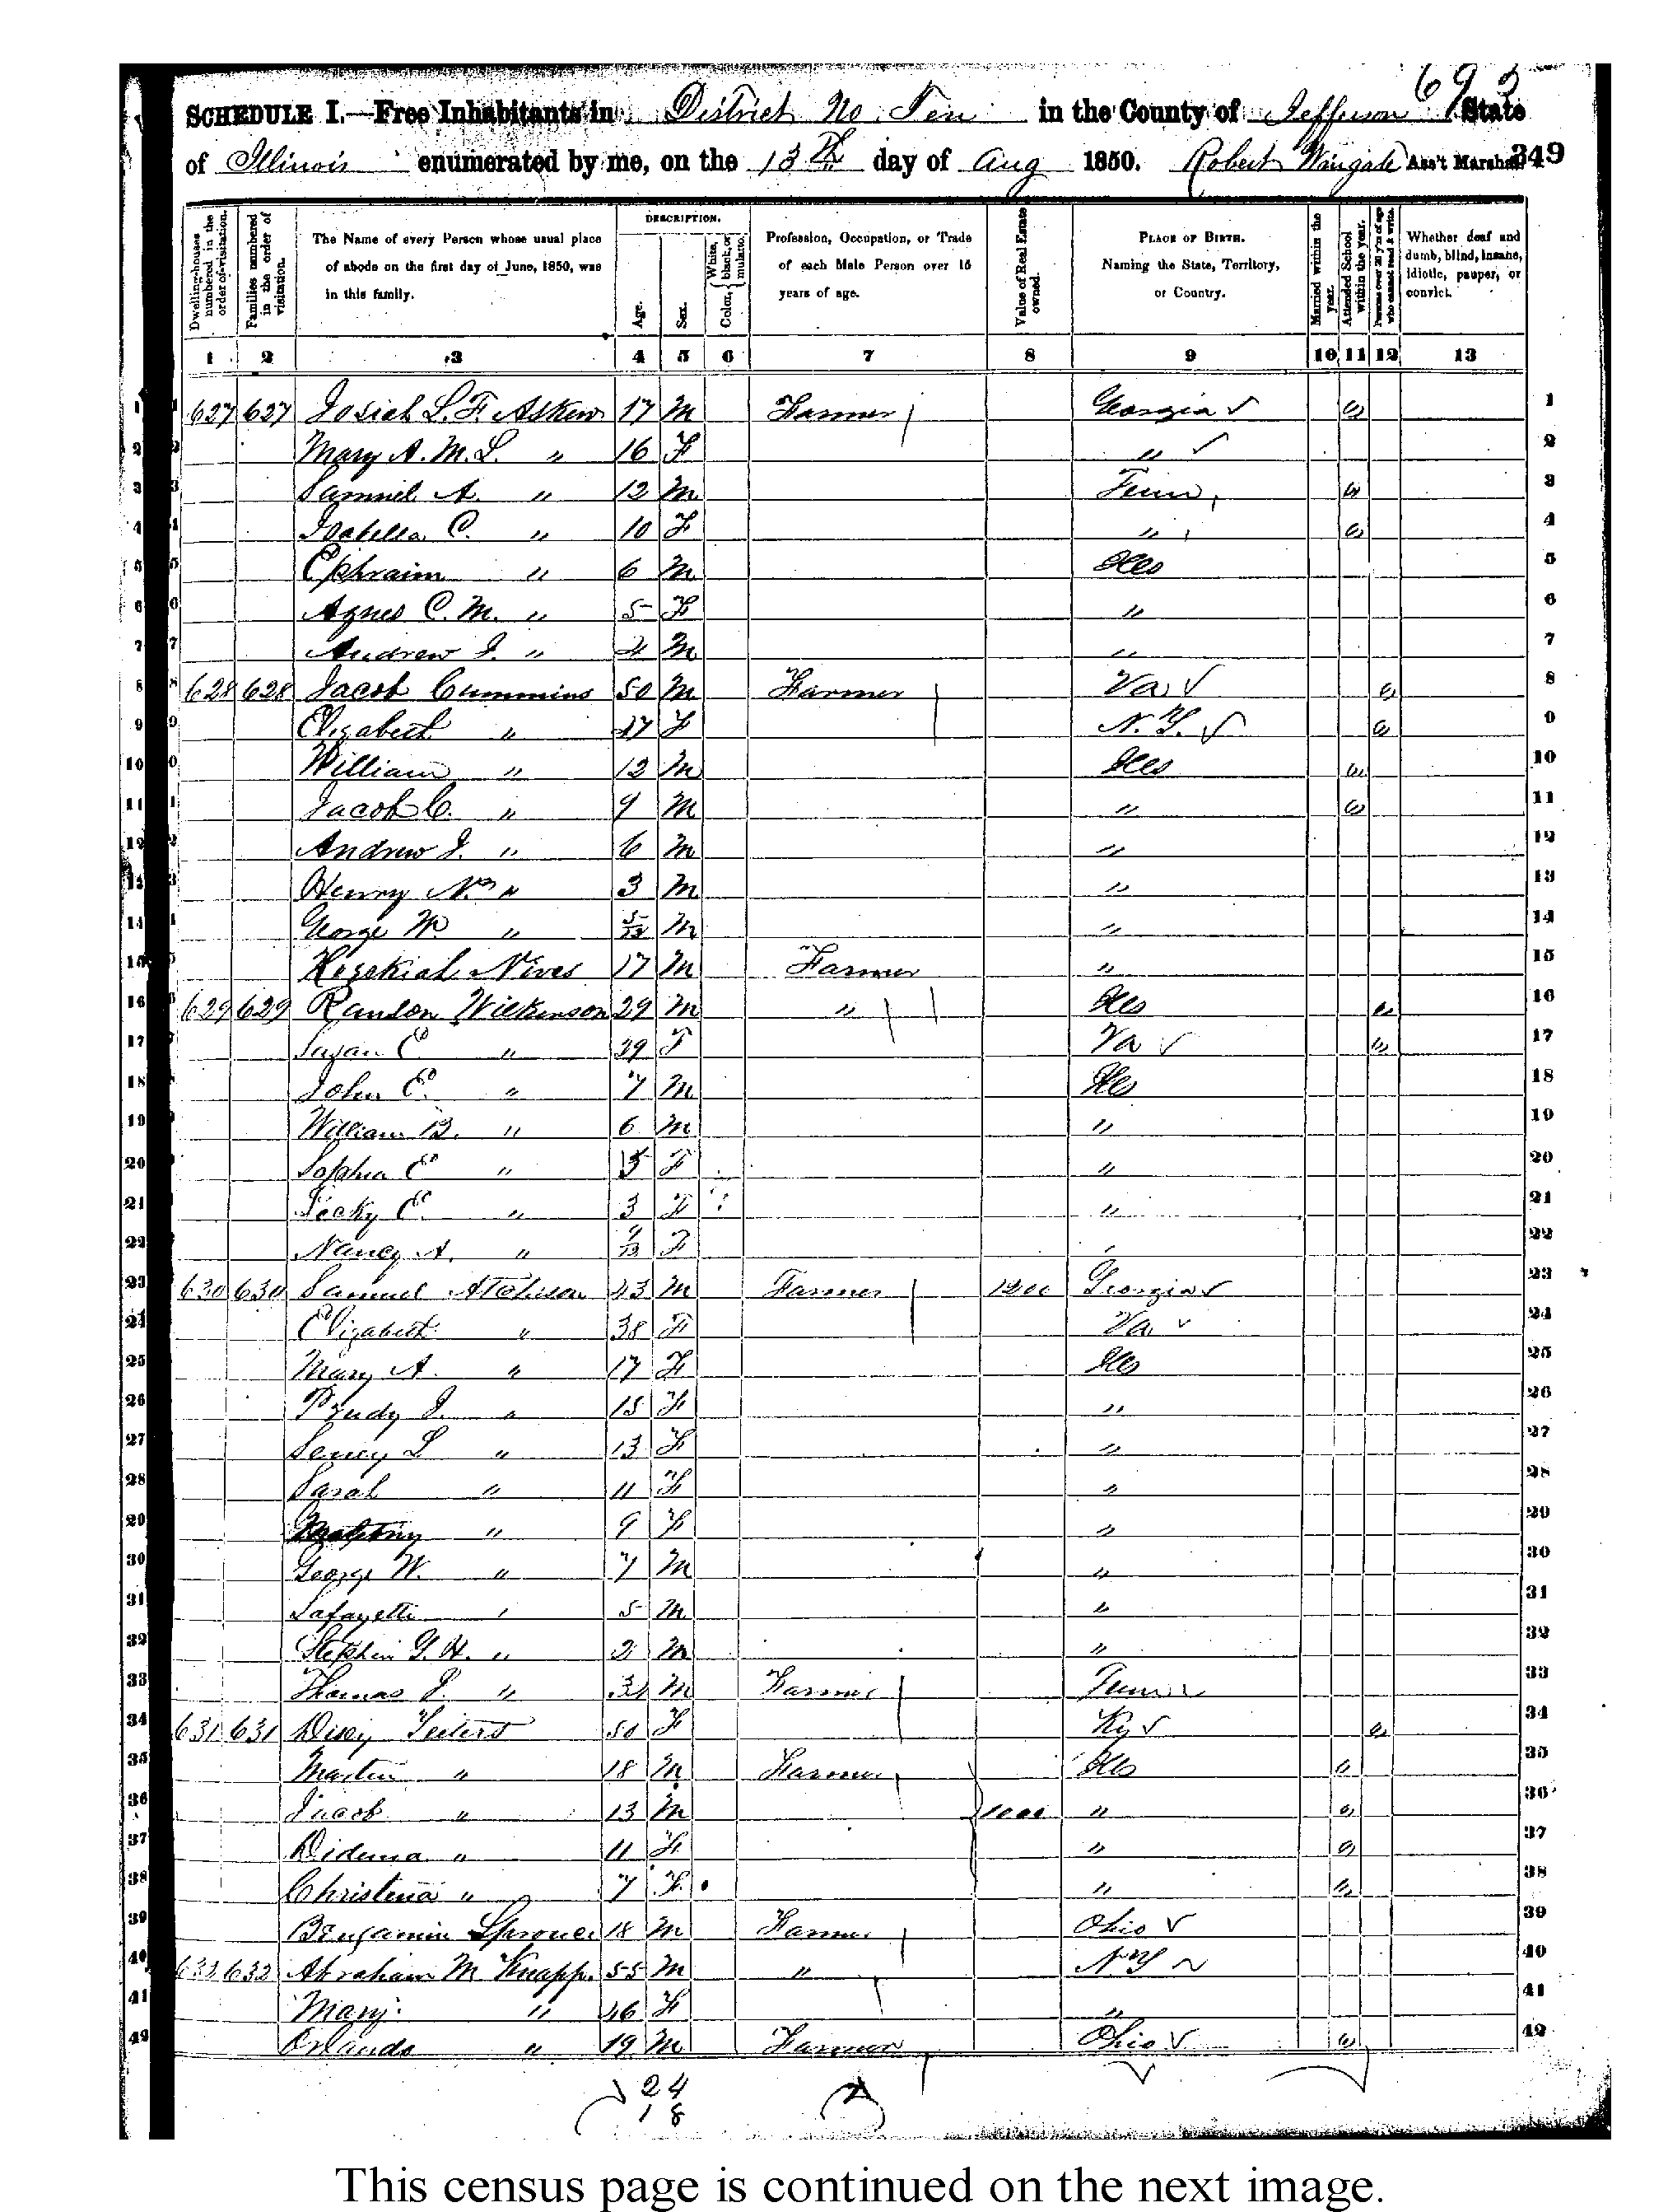 693
SCHEDULE I.—Free Inhabitants in District No Ten in the County of Jefferson State
of Illinois enumerated by me, on the 13th day of Aug 1850. Robert Wingate Ass't Marshal. 349
Dwelling-houses numbered in the order of visitation.
Families numbered in the order of visitation.
The Name of every Person whose usual place of abode on the first day of June, 1850, was in this family.
DESCRIPTION.
Age.
Sex.
Color, { White, black, or mulatto.
Profession, Occupation, or Trade of each Male Person over 15 years of age.
Value of Real Estate owned.
PLACE OF BIRTH. Naming the State, Territory, or Country.
Married within the year.
Attended School within the year.
Persons over 20 y'rs of age who cannot read & write.
Whether deaf and dumb, blind, insane, idiotic, pauper, or convict.
1 2 3 4 5 6 7 8 9 10 11 12 13
1 627 627 Josiah L. F. Askew 17 M Farmer Georgia 1
2 Mary A. M. L. " 16 F " 2
3 Samuel A. " 12 M Tenn 3
4 Isabella C. " 10 F " 4
5 Ephraim " 6 M Ills 5
6 Agnes C. M. " 5 F " 6
7 Andrew J. " 4 M " 7
8 628 628 Jacob Cummins 50 M Farmer Va 8
9 Elizabeth " F N.Y. 9
10 William " 12 M Ills 10
11 Jacob C. " 9 M " 11
12 Andrew J. " 6 M " 12
13 Henry N. " 3 M " 13
14 George W. " 5/12 M " 14
15 Hezekiah Nives 17 M Farmer " 15
16 629 629 Ranson Wilkinson 29 M " Ills 16
17 Susan E " 29 F Va 17
18 John E. " 7 M Ills 18
19 William B. " 6 M " 19
20 Sophia E " 5 F " 20
21 E. " 3 F " 21
22 Nancy A. " F 22
23 630 630 Samuel Atchison 43 M Farmer 1200 Georgia 23
24 Elizabeth " 38 F Va 24
25 Mary A. " 17 F Ills 25
26 J. " 15 F " 26
27 L " 13 F " 27
28 Sarah " 11 F " 28
29 " 9 F " 29
30 George W. " 7 M " 30
31 Lafayette " 5 M " 31
32 Stephen G. H. " 2 M " 32
33 Thomas J. " M Farmer Tenn 33
34 631 631 50 F Ky 34
35 Martin " 18 M Farmer Ills 35
36 Jacob " 13 M 1000 " 36
37 " 11 F " 37
38 Christena " 7 F " 38
39 Benjamin 18 M Farmer Ohio 39
40 632 632 Abraham M Knapp 55 M " N Y 40
41 Mary " 46 F " 41
42 Orlando " 19 M Farmer Ohio 42
24
18
This census page is continued on the next image.